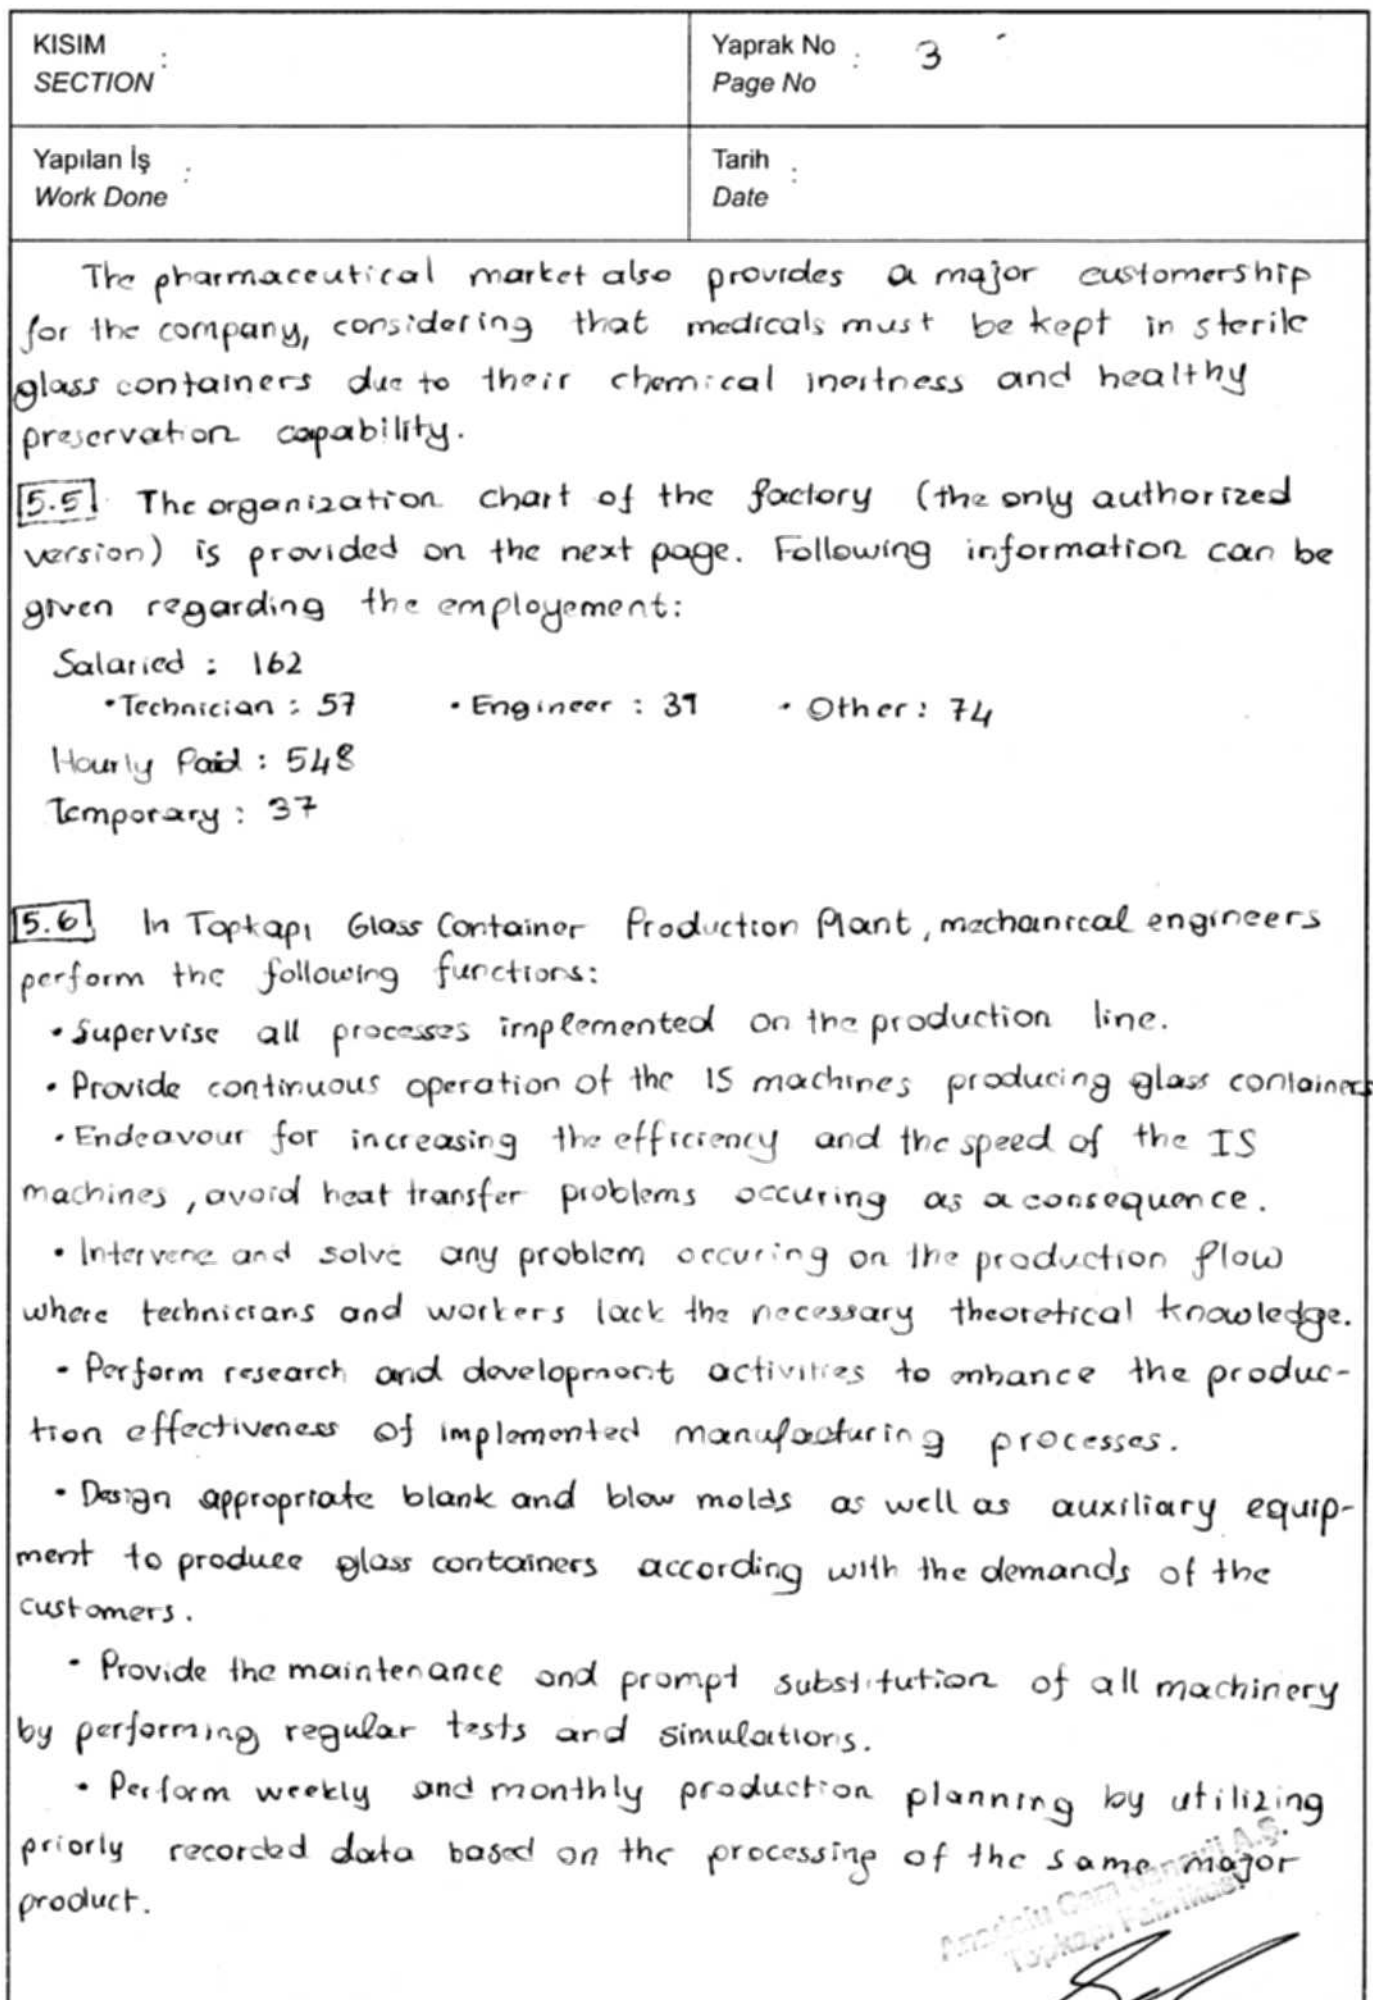 KISIM :
SECTION
Yaprak No : 3
Page No
Yapılan İş :
Work Done
Tarih :
Date
The pharmaceutical market also provides a major customership
for the company, considering that medicals must be kept in sterile
glass containers due to their chemical inertness and healthy
preservation capability.
5.5 The organization chart of the factory (the only authorized
version) is provided on the next page. Following information can be
given regarding the employement:
Salaried : 162
• Technician : 57 • Engineer : 31 • Other : 74
Hourly Paid : 548
Temporary : 37
5.6 In Topkapı Glass Container Production Plant, mechanical engineers
perform the following functions:
• Supervise all processes implemented on the production line.
• Provide continuous operation of the IS machines producing glass containers
• Endeavour for increasing the efficiency and the speed of the IS
machines, avoid heat transfer problems occuring as a consequence.
• Intervene and solve any problem occuring on the production flow
where technicians and workers lack the necessary theoretical knowledge.
• Perform research and development activities to enhance the produc-
tion effectiveness of implemented manufacturing processes.
• Design appropriate blank and blow molds as well as auxiliary equip-
ment to produce glass containers according with the demands of the
customers.
• Provide the maintenance and prompt substitution of all machinery
by performing regular tests and simulations.
• Perform weekly and monthly production planning by utilizing
priorly recorded data based on the processing of the same major
product.
Anadolu Cam Sanayii A.Ş.
Topkapı Fabrikası